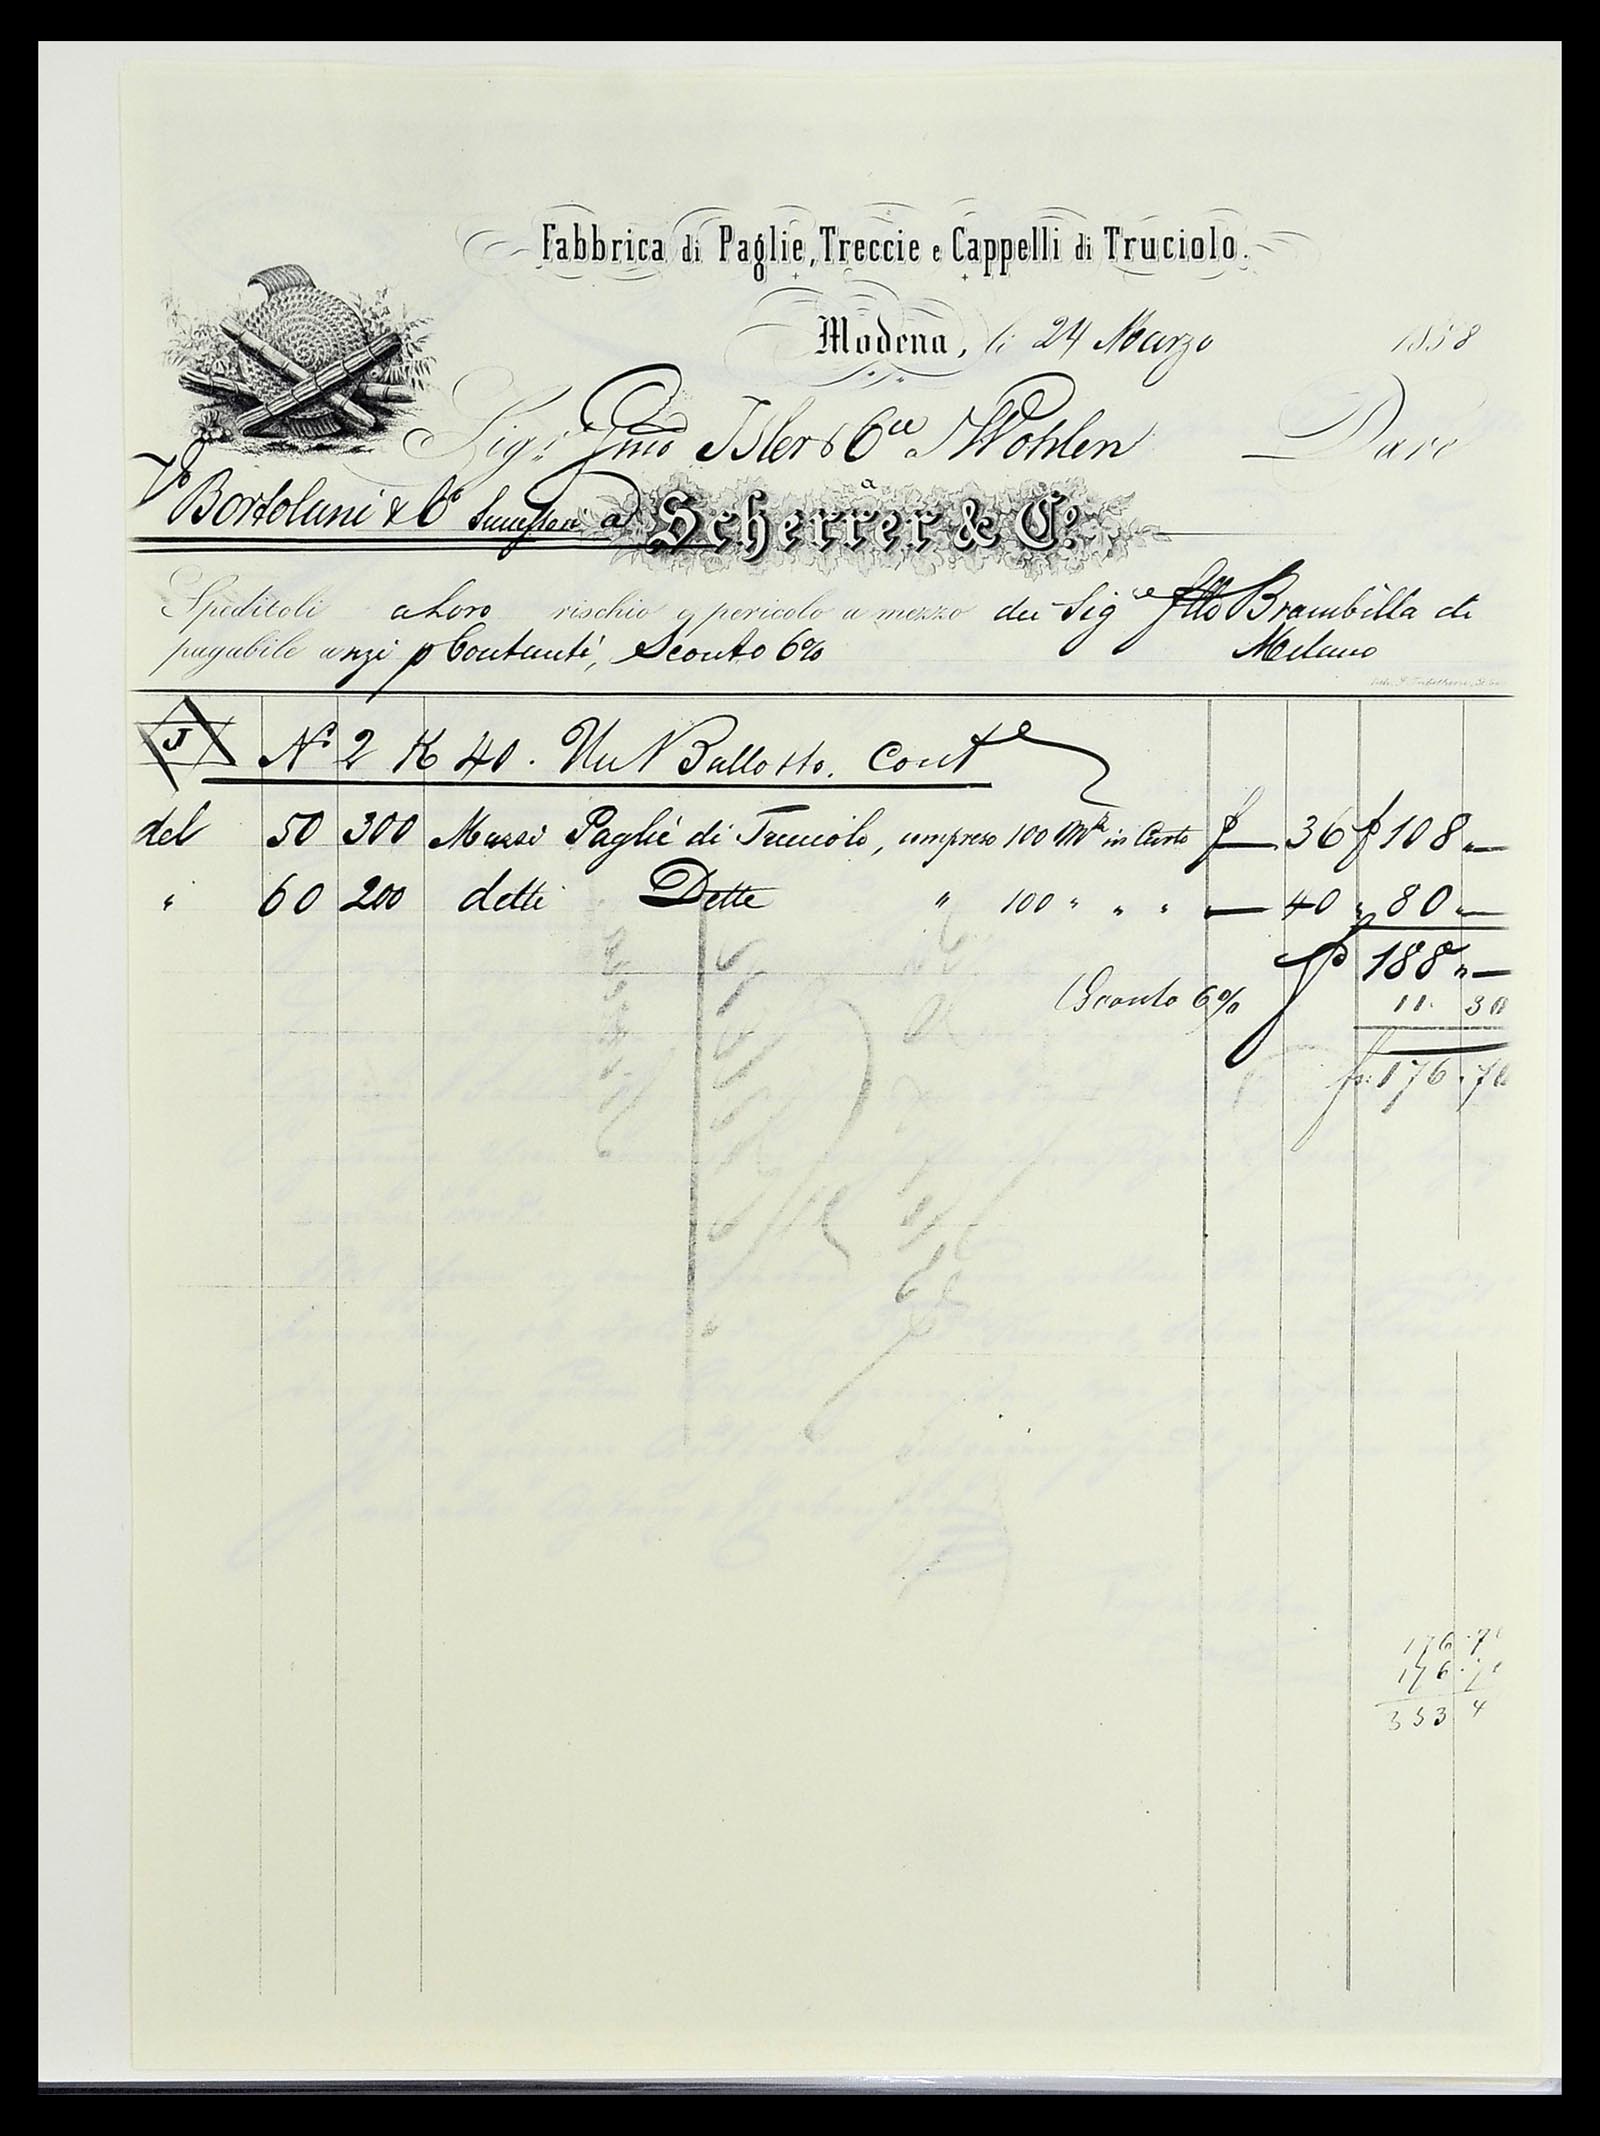 Fabbrica di Paglie, Treccie e Cappelli di Truciolo.
Modena, li 24 Marzo 1858
Sig.ri Jmo Isler & Cie Wohlen Dare
a
Bortolani & Co Successori a Scherrer & Co.
Spediteli a Loro rischio e pericolo a mezzo dei Sig.ri flli Brambilla di
pagabile anzi p Contanti, Sconto 6% Milano
J No 2 K 40. Un Ballotto. Cont e
del 50 300 Mazzi Paglie di Truciolo, compreso 100 Mzi in Corso f — 36 f 108 „ —
" 60 200 detti Dette " 100 " " " — 40 " 80 „ —
f 188 „ —
Sconto 6% 11. 30
fr: 176. 70
176. 70
176. 70
353 4